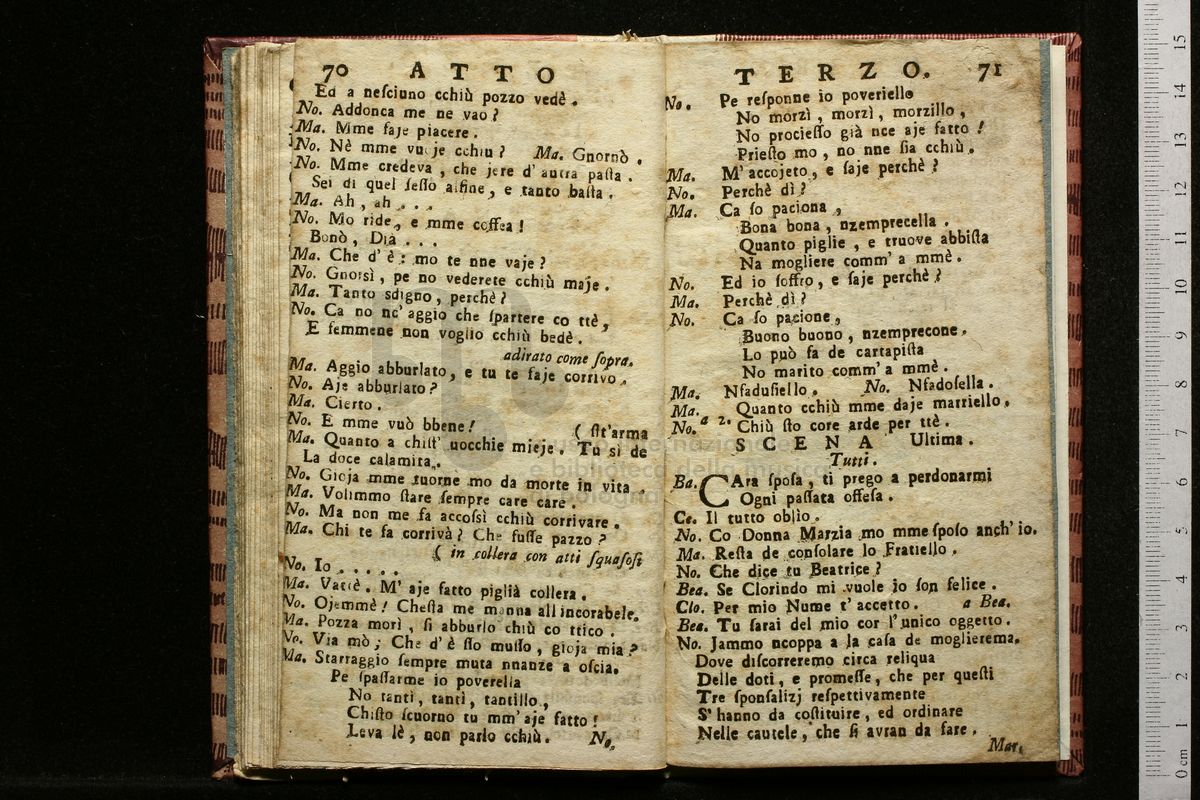 70 ATTO
Ed a nesciuno cchiù pozzo vedè.
No. Addonca me ne vao?
Ma. Mme faje piacere.
No. Nè mme vuoje cchiu? Ma. Gnornò.
No. Mme credeva, che jere d'autra pasta.
Sei di quel sesso alfine, e tanto basta.
Ma. Ah, ah...
No. Mo ride, e mme coffea!
Bonò, Dia...
Ma. Che d'è: mo te nne vaje?
No. Gnorsì, pe no vederete cchiù maje.
Ma. Tanto sdigno, perchè?
No. Ca no nc'aggio che spartere co ttè,
E femmene non voglio cchiù bedè.
adirato come sopra.
Ma. Aggio abburlato, e tu te faje corrivo.
No. Aje abburlato?
Ma. Cierto.
No. E mme vuò bbene!
( st'arma
Ma. Quanto a chist' uocchie mieje. Tu si de
La doce calamita.
No. Gioja mme tuorne mo da morte in vita.
Ma. Volimmo stare sempre care care.
No. Ma non me fa accossì cchiù corrivare.
Ma. Chi te fa corrivà? Che fusse pazzo?
( in collera con atti squasosi
No. Io.....
Ma. Vattè. M'aje fatto piglià collera.
No. Ojemmè! Chesta me manna all incorabele.
Ma. Pozza morì, si abburlo chiù co ttico.
No. Via mò; Che d'è sso musso, gioja mia?
Ma. Starraggio sempre muta nnanze a oscia.
Pe spassarme io poverella
No tanti, tanti, tantillo,
Chisto scuorno tu mm'aje fatto!
Leva lè, non parlo cchiù. No.
TERZO. 71
No. Pe responne io poveriello
No morzì, morzì, morzillo,
No prociesso già nce aje fatto!
Priesto mo, no nne sia cchiù.
Ma. M'accojeto, e saje perchè?
No. Perchè dì?
Ma. Ca so paciona,
Bona bona, nzemprecella.
Quanto piglie, e truove abbista
Na mogliere comm'a mmè.
No. Ed io soffro, e saje perchè?
Ma. Perchè dì?
No. Ca so pacione,
Buono buono, nzemprecone.
Lo può fa de cartapista
No marito comm'a mmè.
Ma. Nfadusiello. No. Nfadosella.
Ma. Quanto cchiù mme daje martiello.
No. a 2. Chiù sto core arde per ttè.
SCENA Ultima.
Tutti.
Ba. CAra sposa, ti prego a perdonarmi
Ogni passata offesa.
Ce. Il tutto oblìo.
No. Co Donna Marzia mo mme sposo anch'io.
Ma. Resta de consolare lo Fratiello.
No. Che dice tu Beatrice?
Bea. Se Clorindo mi vuole io son felice.
Clo. Per mio Nume t'accetto. a Bea.
Bea. Tu sarai del mio cor l'unico oggetto.
No. Jammo ncoppa a la casa de moglierema.
Dove discorreremo circa reliqua
Delle doti, e promesse, che per questi
Tre sponsalizj respettivamente
S'hanno da costituire, ed ordinare
Nelle cautele, che si avran da fare.
Mar.